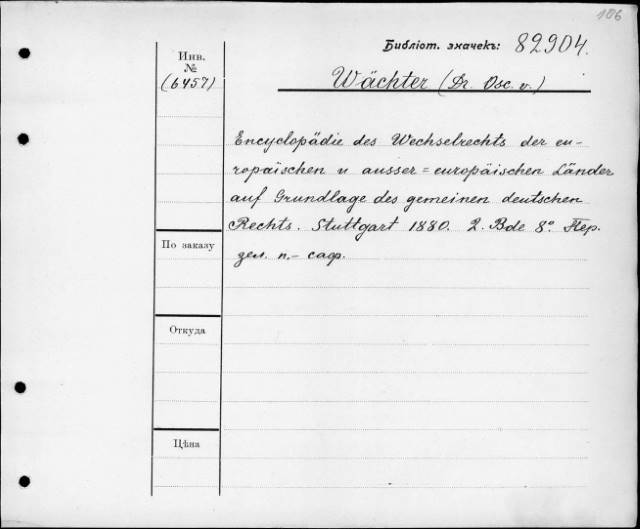 106
Библіот. значекъ: 82904.
Инв.
№
(6457)
Wächter (Dr. Osc. v.)
Encyclopädie des Wechselrechts der eu-
ropäischen u ausser=europäischen Länder
auf Grundlage des gemeinen deutschen
Rechts. Stuttgart 1880. 2. Bde 8º. Пер.
зел. п.- саф.
По заказу
Откуда
Цѣна